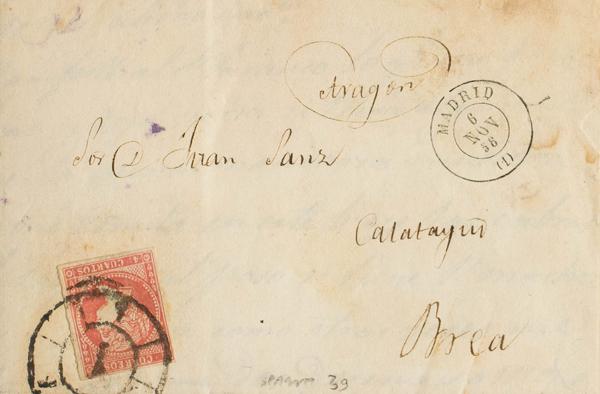 Aragon
MADRID
6
NOV
56
(1)
Sor D Juan Sanz
Calatayud
Brea
4 CUARTOS
CORREOS
1
39